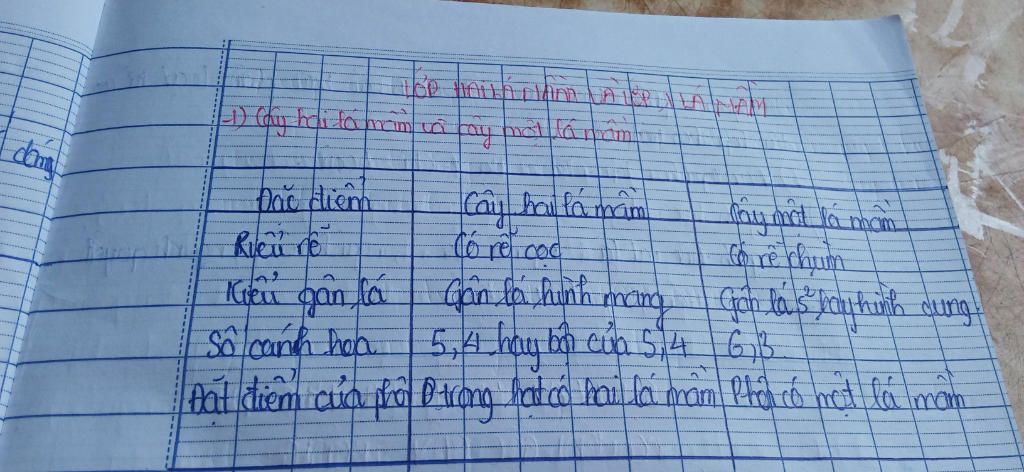 dóng
LỚP HAI LÁ MẦM VÀ LỚP 1 LÁ MẦM
1) Cây hai lá mầm và cây một lá mầm
Đặc điểm Cây hai lá mầm Cây một lá mầm
Kiểu rễ Có rễ cọc Có rễ chùm
Kiểu gân lá Gân lá hình mạng Gân lá s² hay hình cung
Số cánh hoa 5,4 hay bội của 5,4 6,3
Đặt điểm của phôi P trong hạt có hai lá mầm Phôi có một lá mầm